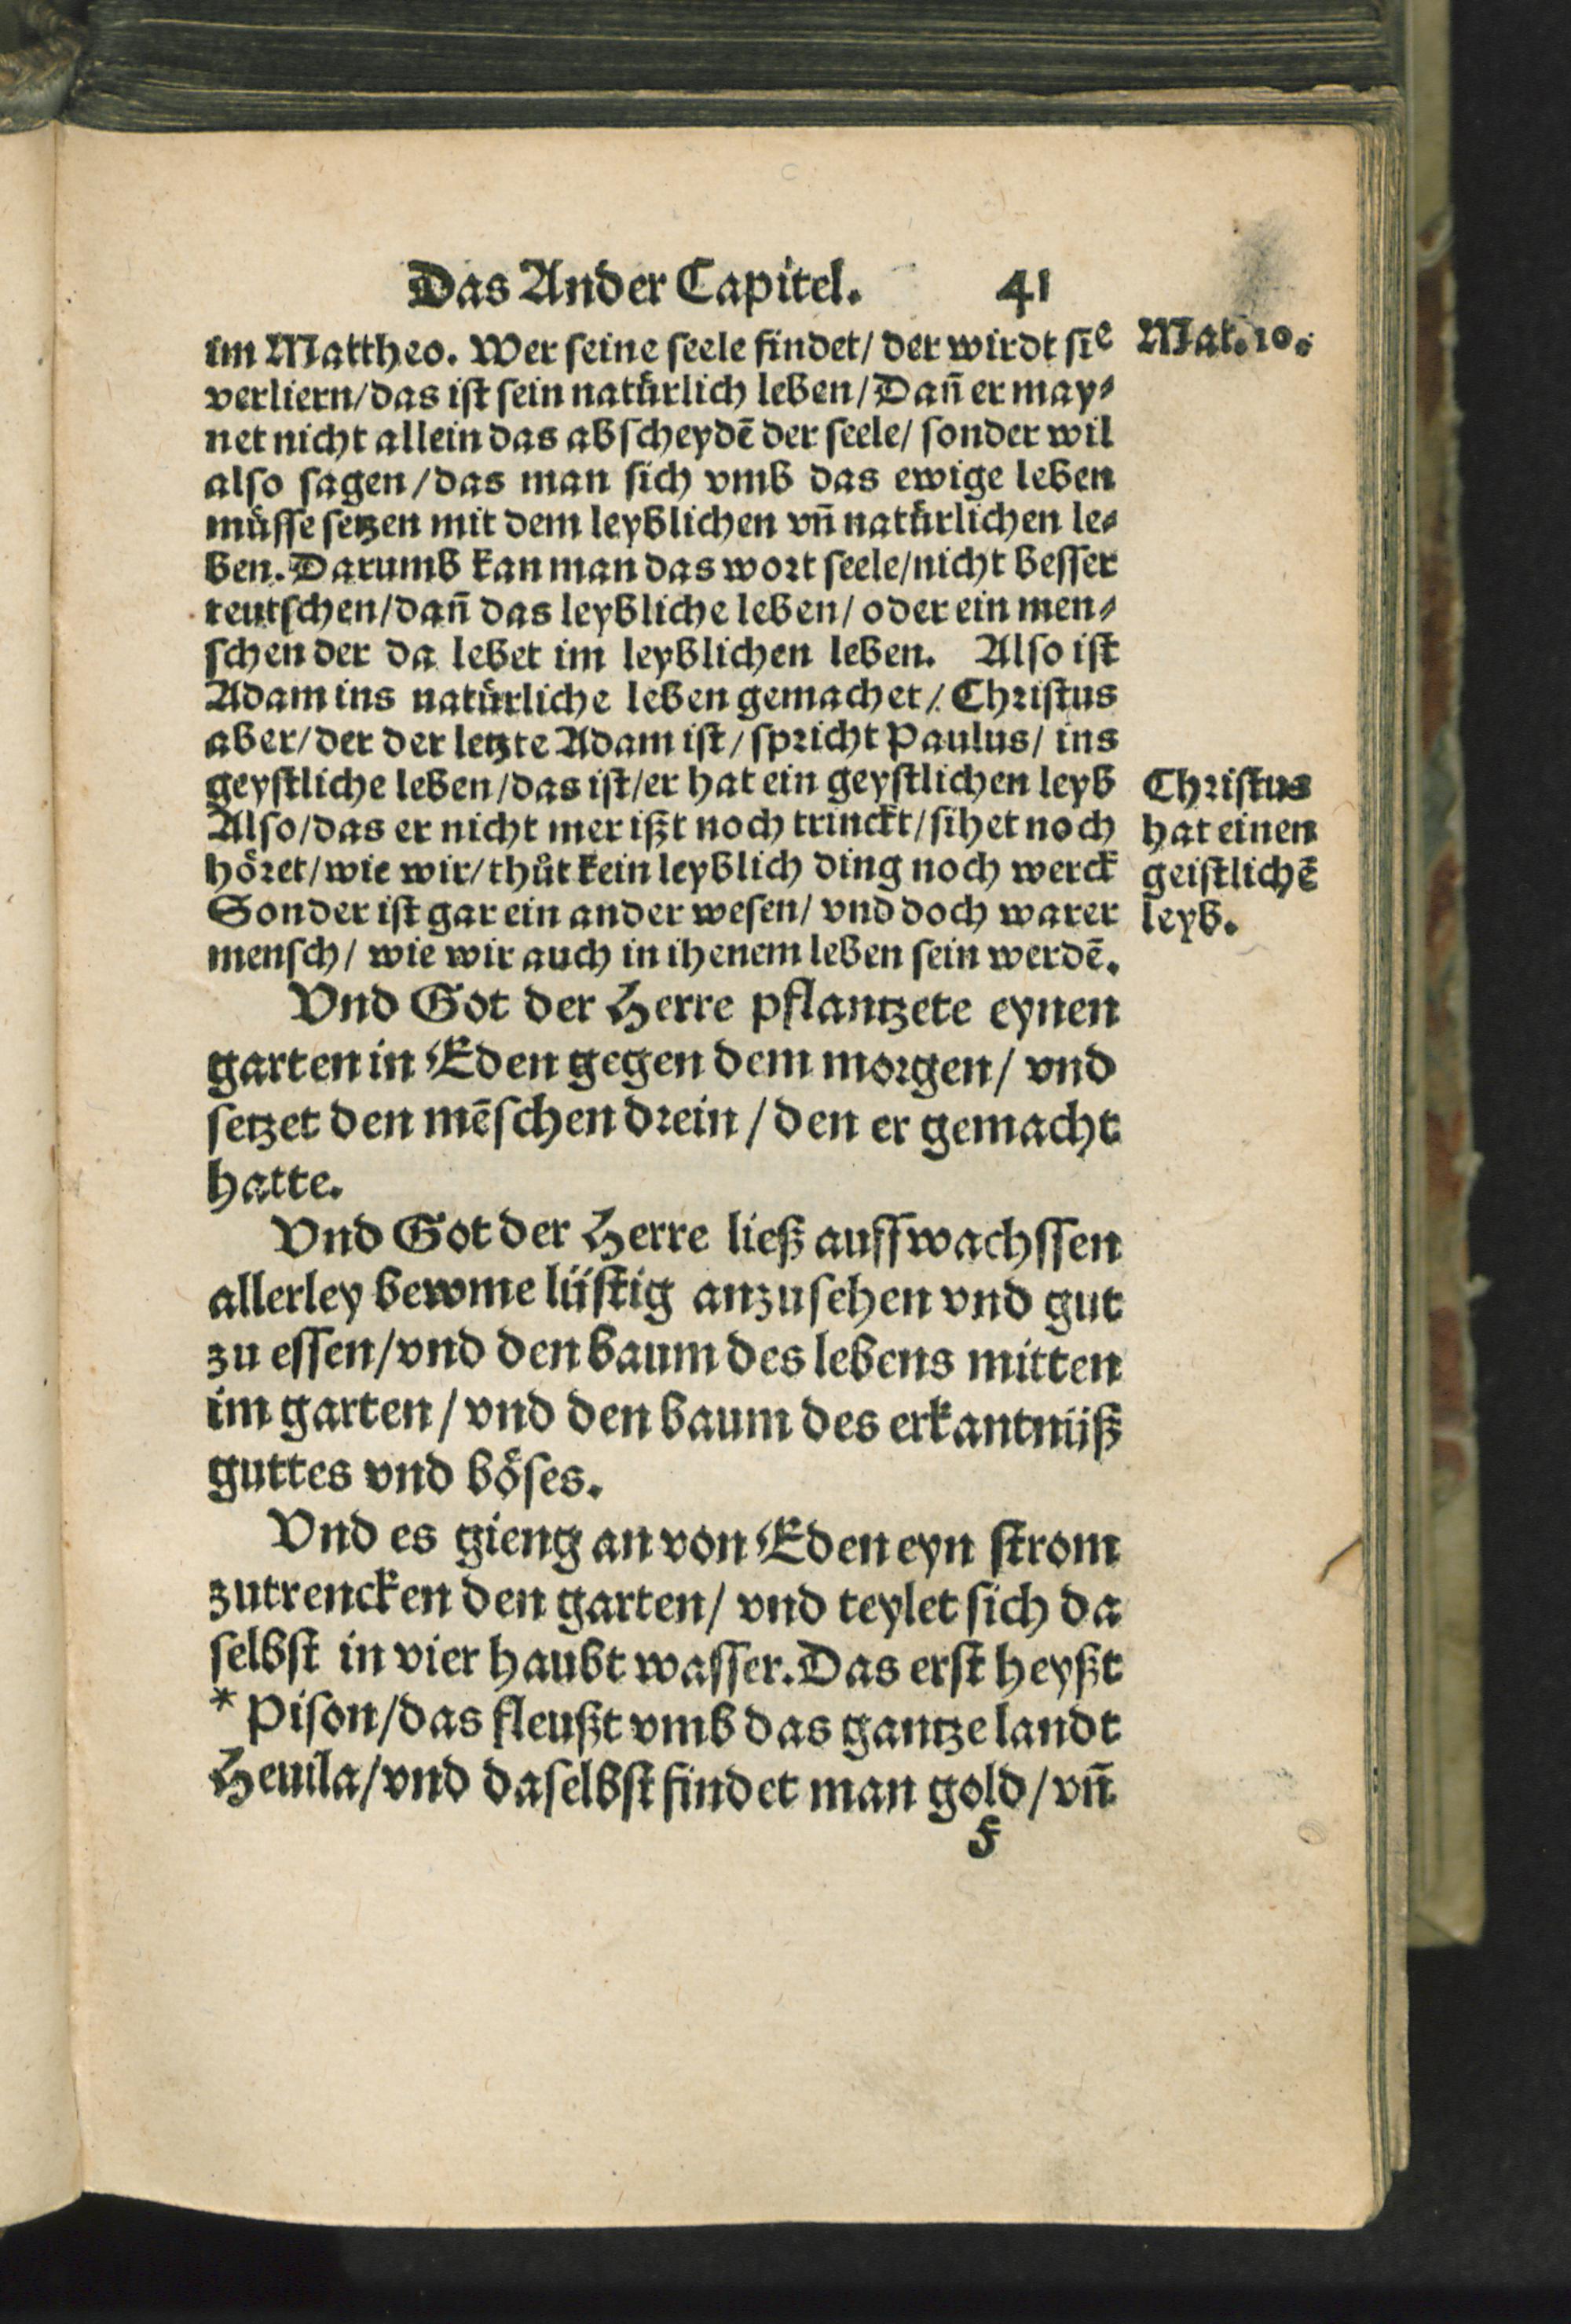 Das Ander Capitel. 41
im Mattheo. Wer seine seele findet/ der wirdt sie
verliern/das ist sein natürlich leben/Dañ er may⸗
net nicht allein das abscheydē der seele/ sonder wil
also sagen/das man sich vmb das ewige leben
müsse setzen mit dem leyblichen vñ natürlichen le⸗
ben. Darumb kan man das wort seele/nicht besser
teutschen/dañ das leybliche leben/ oder ein men⸗
schen der da lebet im leyblichen leben. Also ist
Adam ins natürliche leben gemachet/ Christus
aber/der der letzte Adam ist/ spricht Paulus/ ins
geystliche leben/das ist/er hat ein geystlichen leyb
Also/das er nicht mer ißt noch trinckt/sihet noch
höret/wie wir/thůt kein leyblich ding noch werck
Sonder ist gar ein ander wesen/ vnd doch warer
mensch/ wie wir auch in ihenem leben sein werdē.
Mat. 10.
Christus
hat einen
geistlichē
leyb.
Vnd Got der Herre pflantzete eynen
garten in Eden gegen dem morgen/ vnd
setzet den mēschen drein/den er gemacht
hatte.
Vnd Got der Herre ließ auffwachssen
allerley bewme lüstig anzusehen vnd gut
zu essen/vnd den baum des lebens mitten
im garten/vnd den baum des erkantnüß
guttes vnd böses.
Vnd es gieng an von Eden eyn strom
zutrencken den garten/ vnd teylet sich da
selbst in vier haubt wasser. Das erst heyßt
* Pison/das fleußt vmb das gantze landt
Heuila/vnd daselbst findet man gold/vñ
F